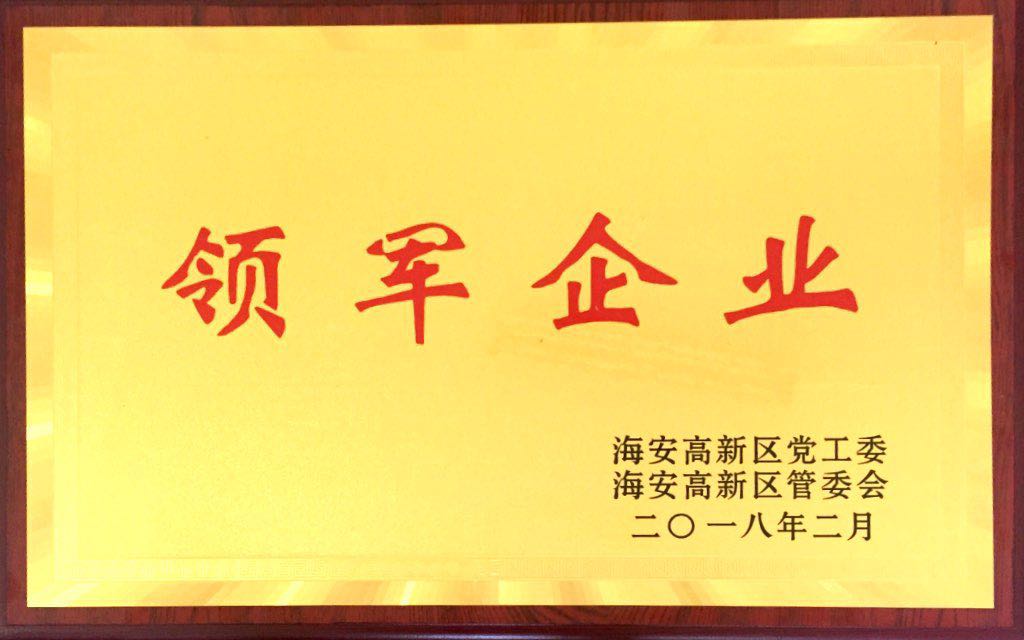 领军企业
海安高新区党工委
海安高新区管委会
二〇一八年二月